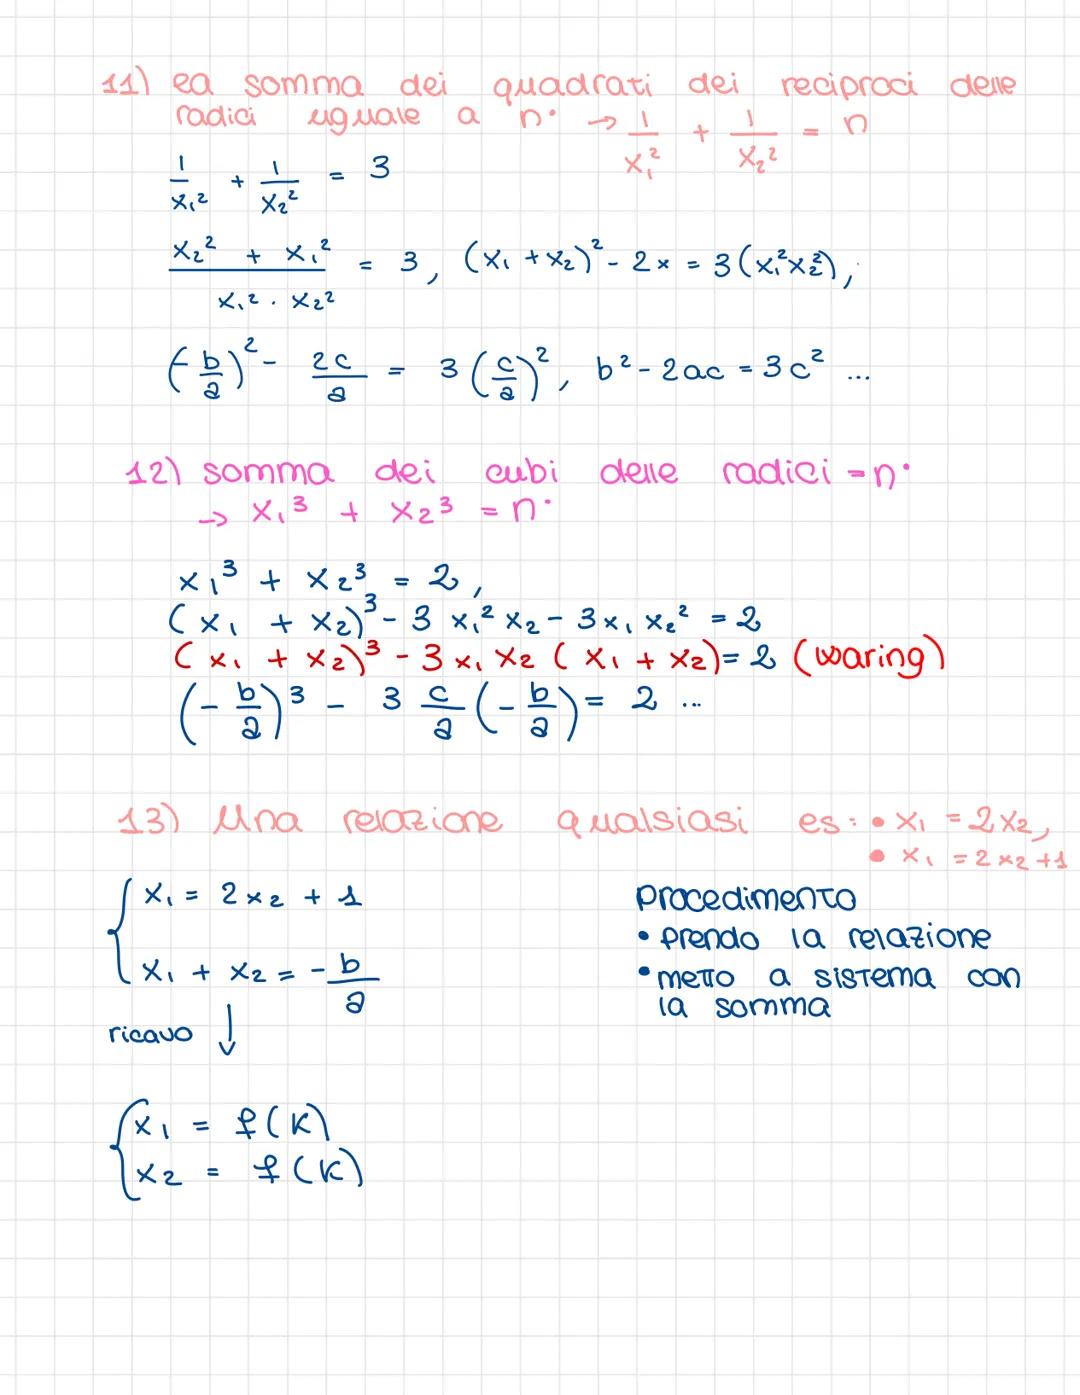 11) la somma dei quadrati dei reciproci delle
radici uguale a n° → 1/x₁² + 1/x₂² = n
1/x₁² + 1/x₂² = 3
(x₂² + x₁²)/(x₁² · x₂²) = 3, (x₁ + x₂)² - 2x = 3(x₁²x₂²),
(-b/a)² - 2c/a = 3(c/a)², b² - 2ac = 3c² ...
12) somma dei cubi delle radici = n°
→ x₁³ + x₂³ = n°
x₁³ + x₂³ = 2,
(x₁ + x₂)³ - 3x₁²x₂ - 3x₁x₂² = 2
(x₁ + x₂)³ - 3x₁x₂(x₁ + x₂) = 2 (waring)
(-b/a)³ - 3 c/a (-b/a) = 2 ...
13) Una relazione qualsiasi es: • x₁ = 2x₂,
• x₁ = 2x₂ + 1
{ x₁ = 2x₂ + 1
x₁ + x₂ = -b/a
ricavo ↓
{ x₁ = f(k)
x₂ = f(k)
Procedimento
• prendo la relazione
• metto a sistema con
la somma